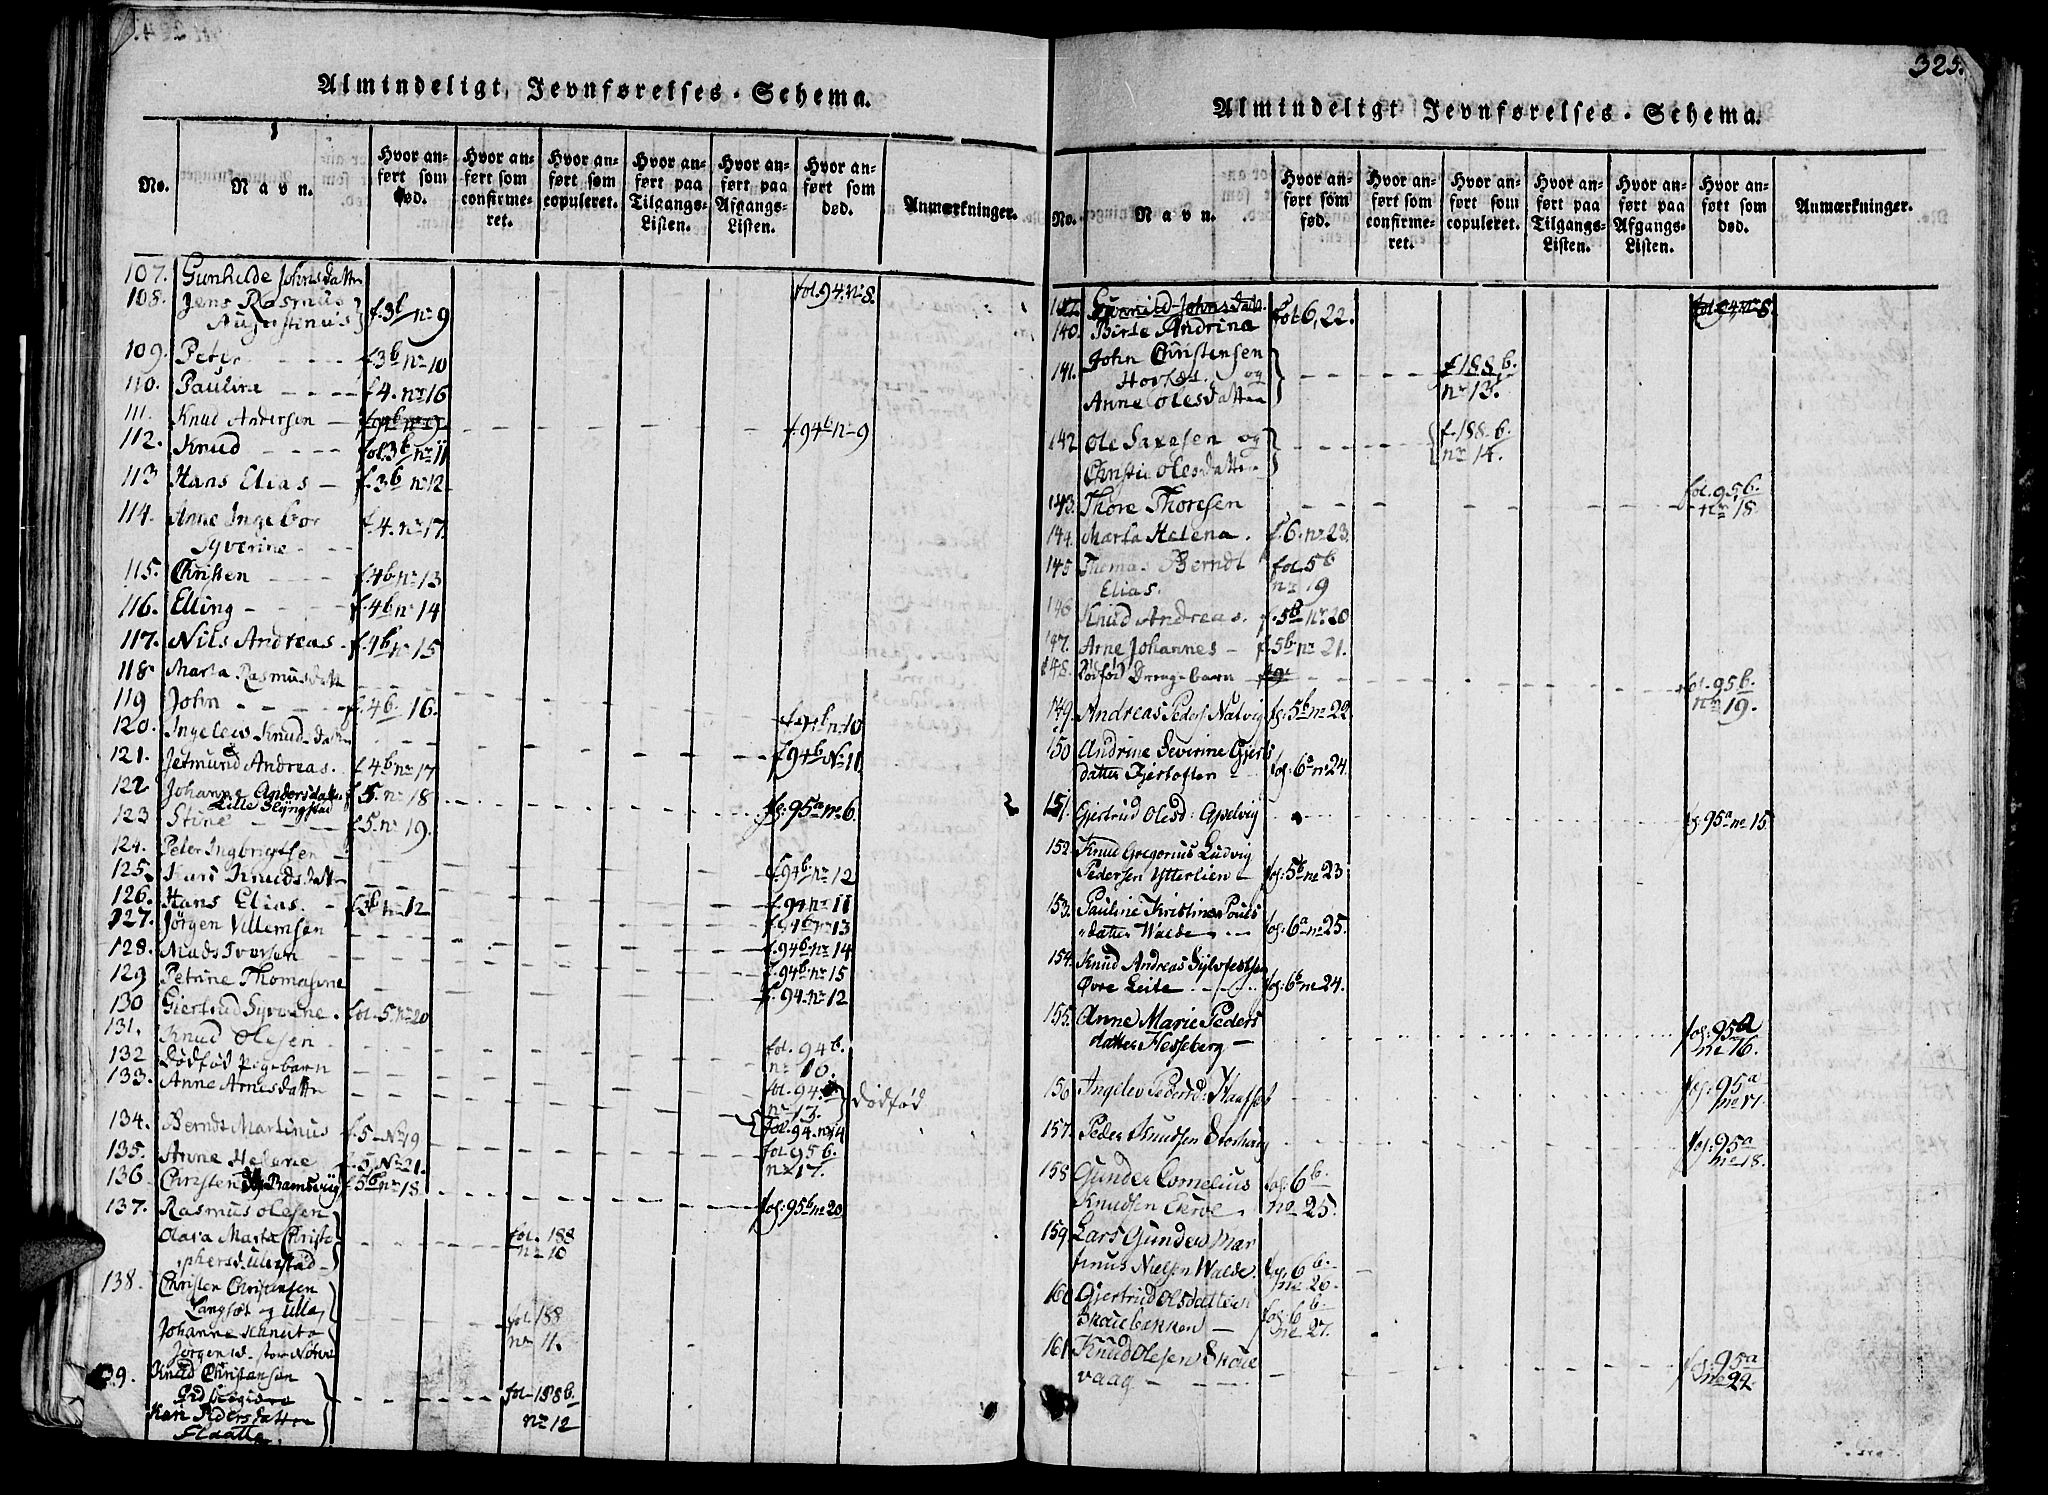 Almindeligt Jevnførelses-Schema.
No.
Navn.
Hvor anført som fød.
Hvor anført som confirmeret.
Hvor anført som copuleret.
Hvor anført paa Tilgangs-Listen.
Hvor anført paa Afgangs-Listen.
Hvor anført som død.
Anmærkninger.
107. Gunhilde Johnsdatter fol. 94. nr 8.
108. Jens Rasmus
Augustinus f. 3b nr 9
109. Peter f 3b nr 10
110. Pauline f 4. nr 16
111. Knud Andersen f. 94b nr 9
112. Knud fol 3b nr 11
113 Hans Elias f. 3b nr 12
114. Anne Ingebor
Syverine f. 4. nr 17.
115. Christen f. 4b nr 13
116. Elling f. 4b nr 14
117. Nils Andreas f. 4b nr 15
118. Marta Rasmusdatt
119 John f. 4b. 16. f. 94b nr 10
120. Ingelew Knudsdatter f 94b Nr 11
121. Jetmund Andreas. f 4b nr 17
122 Johanne Andersdatter f. 5. nr 18 fol: 95a nr 6.
Lille
123 Stine f. 5. nr 19.
124. Peter Ingbrigtsen f. 94b nr 12
125. Kari Knudsdatter f. 94 nr 11
126. Hans Elias. f 3b nr 12 f. 94b nr 13
127. Jørgen Villemsen f. 94b nr 14
128. Mads Iversen f. 94b nr 15
129 Petrine Thomasine f. 94 nr 12
130 Giertrud Syverine. fol. 5. Nr 20
131. Knud Olesen fol. 94b.
nr 16.
132 Dødfød Pigebarn fol. 94.
nr 13. Dødfød
133. Anne Arnesdatter fol. 94. nr 14
134. Berndt Martinus f. 5 Nr 19 fol 95b.
nr 17.
135. Anne Helene f. 5. Nr 21.
136 Christen Ramsviig f 5b nr 18. fol: 95b nr 20
137. Rasmus Olesen
Olava Marta Christo
phersd: Ulerstad fol. 188
nr 10
138. Christen Christensen
Langset og Ulla
Johanne Schnuta
Jørgensd. fol 188
nr 11.
139. Knud Christensen
Kari Pedersdatter
Flaatte fol 188b.
nr 12
325.
Almindeligt Jevnførelses-Schema.
No.
Navn.
Hvor anført som fød.
Hvor anført som confirmeret.
Hvor anført som copuleret.
Hvor anført paa Tilgangs-Listen.
Hvor anført paa Afgangs-Listen.
Hvor anført som død.
Anmærkninger.
Gunnild Johnsdatt. fol 94 nr 8
140. Birte Andrina fol 6, 22.
141. John Christensen
Hovset. og
Anne Olesdatter f 188b.
nr 13.
142 Ole Saxesen og
Christie Olesdatter f. 188b.
nr 14.
143. Thore Thoresen fol. 95b.
nr 18
144. Marta Helena. f. 6. nr 23.
145 Thomas Berndt
Elias. fol 5b
nr 19
146. Knud Andreas. f. 5b nr 20
147. Arne Johannes f. 5b nr 21.
148. Dødfød Drengebarn fol. 95b.
nr 19.
149. Andreas Peders. Natvig fol: 5b nr 22.
150 Andrine Severine Gjerts
datter Gjertoften fol: 6a nr 24.
151. Gjertrud Olesd: Gjelvig fol: 95a nr 15.
152. Knud Gregorius Ludvig
Pedersen Ytterlien fol: 5b nr 23
153. Pauline Kristine Pouls
datter Walde fol: 6a nr 25.
154. Knud Andreas Sylvestsen
Øvre Leite fol: 6b nr 24.
155. Anne Marie Peders
datter Hesseberg fol: 95a
nr 16.
156 Ingelev Pedersd: Haafset fol: 95a
nr 17.
157. Peder Knudsen Storhaug fol: 95a
nr 18.
158 Gunder Cornelius
Knudsen fol: 6b.
nr 25.
159. Lars Gunder Mar
tinus Nielsen Walde. fol: 6b.
nr 26.
160 Gjertrud Olsdatter
Skouebakken fol: 6b.
nr 27.
161. Knud Olesen Skoue
vaag fol: 95a
nr 22.